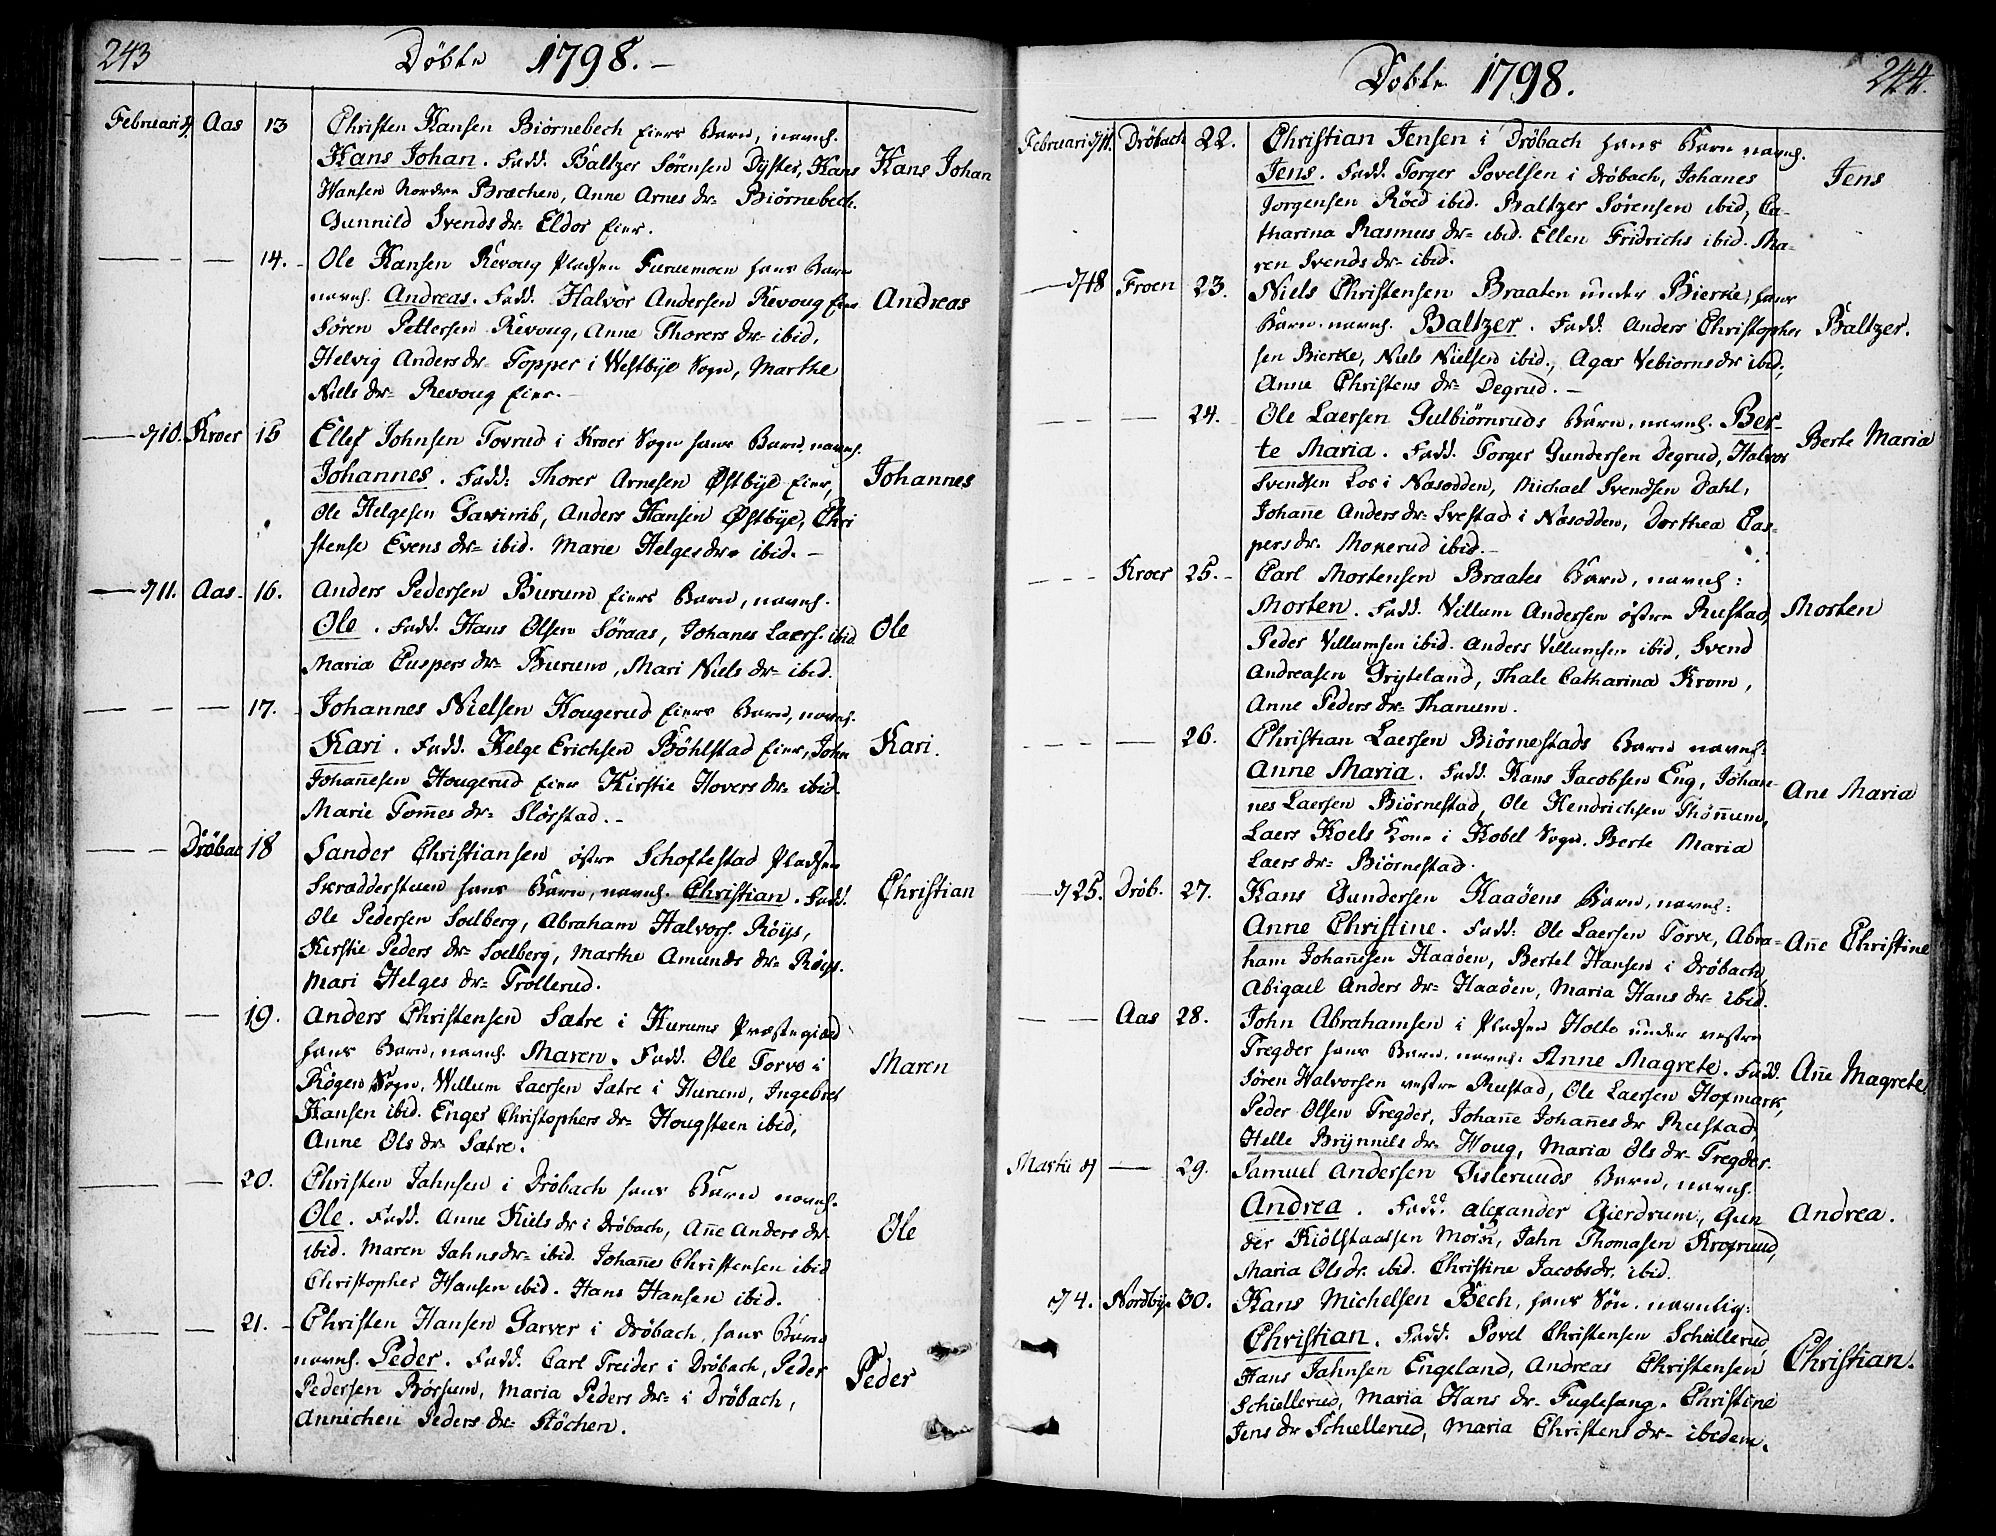 243
Döbte 1798.
Februarii d 4 Aas 13 Christen Hansen Biörnebech Eiers Barn, navnl.
Hans Johan. Fadd. Baltzer Sörensen Dyster, Hans Hans Johan
Hansen Nordre Bræchen, Anne Arnes dr= Biörnebech.
Gunnild Svends dr= Eldor Eier.
14. Ole Hansen Revoug Pladsen Furuemoen hans Barn
navnl. Andreas. Fadd. Halvor Andersen Revoug Eier Andreas
Sören Pettersen Revoug, Anne Thorers dr= ibid,
Helvig Anders dr= Topper i Westbye Sogn, Marthe
Niels dr= Revoug Eier.
d 10. Kroer 15 Ellef Johnsen Tovrud i Kroer Sogn hans Barn, navnl.
Johannes. Fadd: Thorer Arnesen Østbye Eier, Johannes
Ole Helgesen Garimib, Anders Hansen Østbye, Chri
stense Evens dr= ibid. Marie Helges dr= ibid.
d 11. Aas. 16. Anders Pedersen Burum Eiers Barn, navnl.
Ole. Fadd. Hans Olsen Söraas, Johanes Laers. ibid Ole
Maria Caspers dr= Burum, Mari Niels dr= ibid.
17. Johannes Nielsen Hougerud Eiers Barn, navnl.
Kari. Fadd. Helge Erichsen Böhlstad Eier, John Kari.
Johanesen Hougerud Eier Kirstie Hovers dr= ibid.
Marie Tomes dr= Slörstad.
Dröbac 18 Sander Christiansen östre Schoftestad Pladsen
Skraddersteuen hans Barn, navnl. Christian. Fadd. Christian
Ole Pedersen Solberg, Abraham Halvors. Röys,
Kirstie Peders dr= Solberg, Marthe Amunds dr= Röys.
Mari Helges dr= Trollerud.
19. Anders Christensen Sætre i Hurums Præstegield
hans Barn, navnl. Maren. Fadd. Ole Torvo i Maren
Rögen Sogn, Willum Laersen Sætre i Hurum, Ingebret
Hansen ibid. Enger Christophers dr= Hougsteen ibid,
Anne Ols dr= Sætre.
20. Christen Jahnsen i Dröbach hans Barn navnl.
Ole. Fadd. Anne Niels dr i Dröbach, Ane Anders dr Ole
ibid. Maren Jahns dr= ibid. Johane Christensen ibid
Christopher Hansen ibid. Hans Hansen ibid.
21. Christen Hansen Garver i Dröbach, hans Barn
navnl. Peder. Fadd. Carl Treider i Dröbach, Peder Peder
Pedersen Börsum, Maria Peders dr= i Dröbach,
Annichen Peders dr= Stöchen.
244.
Döbte 1798.
Februari d 11. Dröbach 22. Christian Jensen i Dröbach hans Barn navnl.
Jens. Fadd. Torger Povelsen i Dröbach, Johanes Jens
Jorgensen Röed ibid. Baltzer Sörensen ibid, Ca-
tharina Rasmus dr= ibid. Ellen Fridrichs ibid. Ma-
ren Svends dr= ibid.
d 18 Froen 23. Niels Christensen Braaten under Bierke, hans
Barn. navnl. Baltzer. Fadd. Anders Christopher Baltzer.
sen Bierke, Niels Nielsen ibid., Agar Vebiorns dr ibid,
Anne Christens dr= Degrud.
24. Ole Laersen Gulbiörnruds Barn, navnl. Ber-
te Maria. Fadd. Torger Gundersen Degrud, Halvor Berte Maria
Svendsen Los i Næsodden, Michael Svendsen Dahl,
Johane Anders dr= Svestad i Næsodden, Dorthea Cas-
pers dr. Mokerud ibid.
Kroer 25. Carl Mortensen Braates Barn, navnl:
Morten. Fadd. Villum Andersen östre Rustad, Morten
Peder Villumsen ibid. Anders Villumsen ibid, Svend
Andreasen Gryteland, Thale Catharina Krom,
Anne Peders dr= Thanum.
26. Christian Laersen Biörnestads Barn navnl:
Anne Maria. Fadd. Hans Jacobsen Eng, Johan- Ane Maria
nes Laersen Biörnestad, Ole Hendrichsen Thönnum,
Laers Koels Kone i Kobel Sogn. Berte Maria
Laers dr= Biörnestad.
d 25. Dröb. 27. Hans Gundersen Haaöens Barn, navnl:
Anne Christine. Fadd. Ole Laersen Torve, Abra- Ane Christine
ham Johanesen Haaöen, Bertel Hansen i Dröbach,
Abigael Anders dr= Haaöen, Maria Hans dr= ibid.
Aas 28. John Abrahamsen i Pladsen Holte under vestre
Tregder hans Barn. navnl. Anne Magrete. Fadd. Ane Magrete.
Sören Halvorsen vestre Rustad, Ole Laersen Hofmark,
Peder Olsen Tregder, Johane Johanes dr Rustad,
Helle Brynnils dr= Houg, Maria Ols dr= Tregder.
Martii d 29. Samuel Andersen Gislerunds Barn, navnl.
Andrea. Fadd. Alexander Gierdrum, Gun Andrea.
der Kiölstaassen Mörk, Jahn Thomasen Krogrud,
Maria Ols dr. ibid. Christine Jacobs dr. ibid.
d 4. Nordbye 30. Hans Michelsen Bech, hans Sön. navnlig:
Christian. Fadd. Povel Christensen Schiellerud, Christian.
Hans Jahnsen Engeland, Andreas Christensen
Schiellerud, Maria Hans dr= Fuglesang. Christine
Jens dr Schiellerud, Maria Christens dr= ibidem.